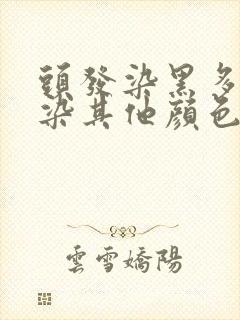 頭發染黑多
染其他顏色
雲雪嬌陽